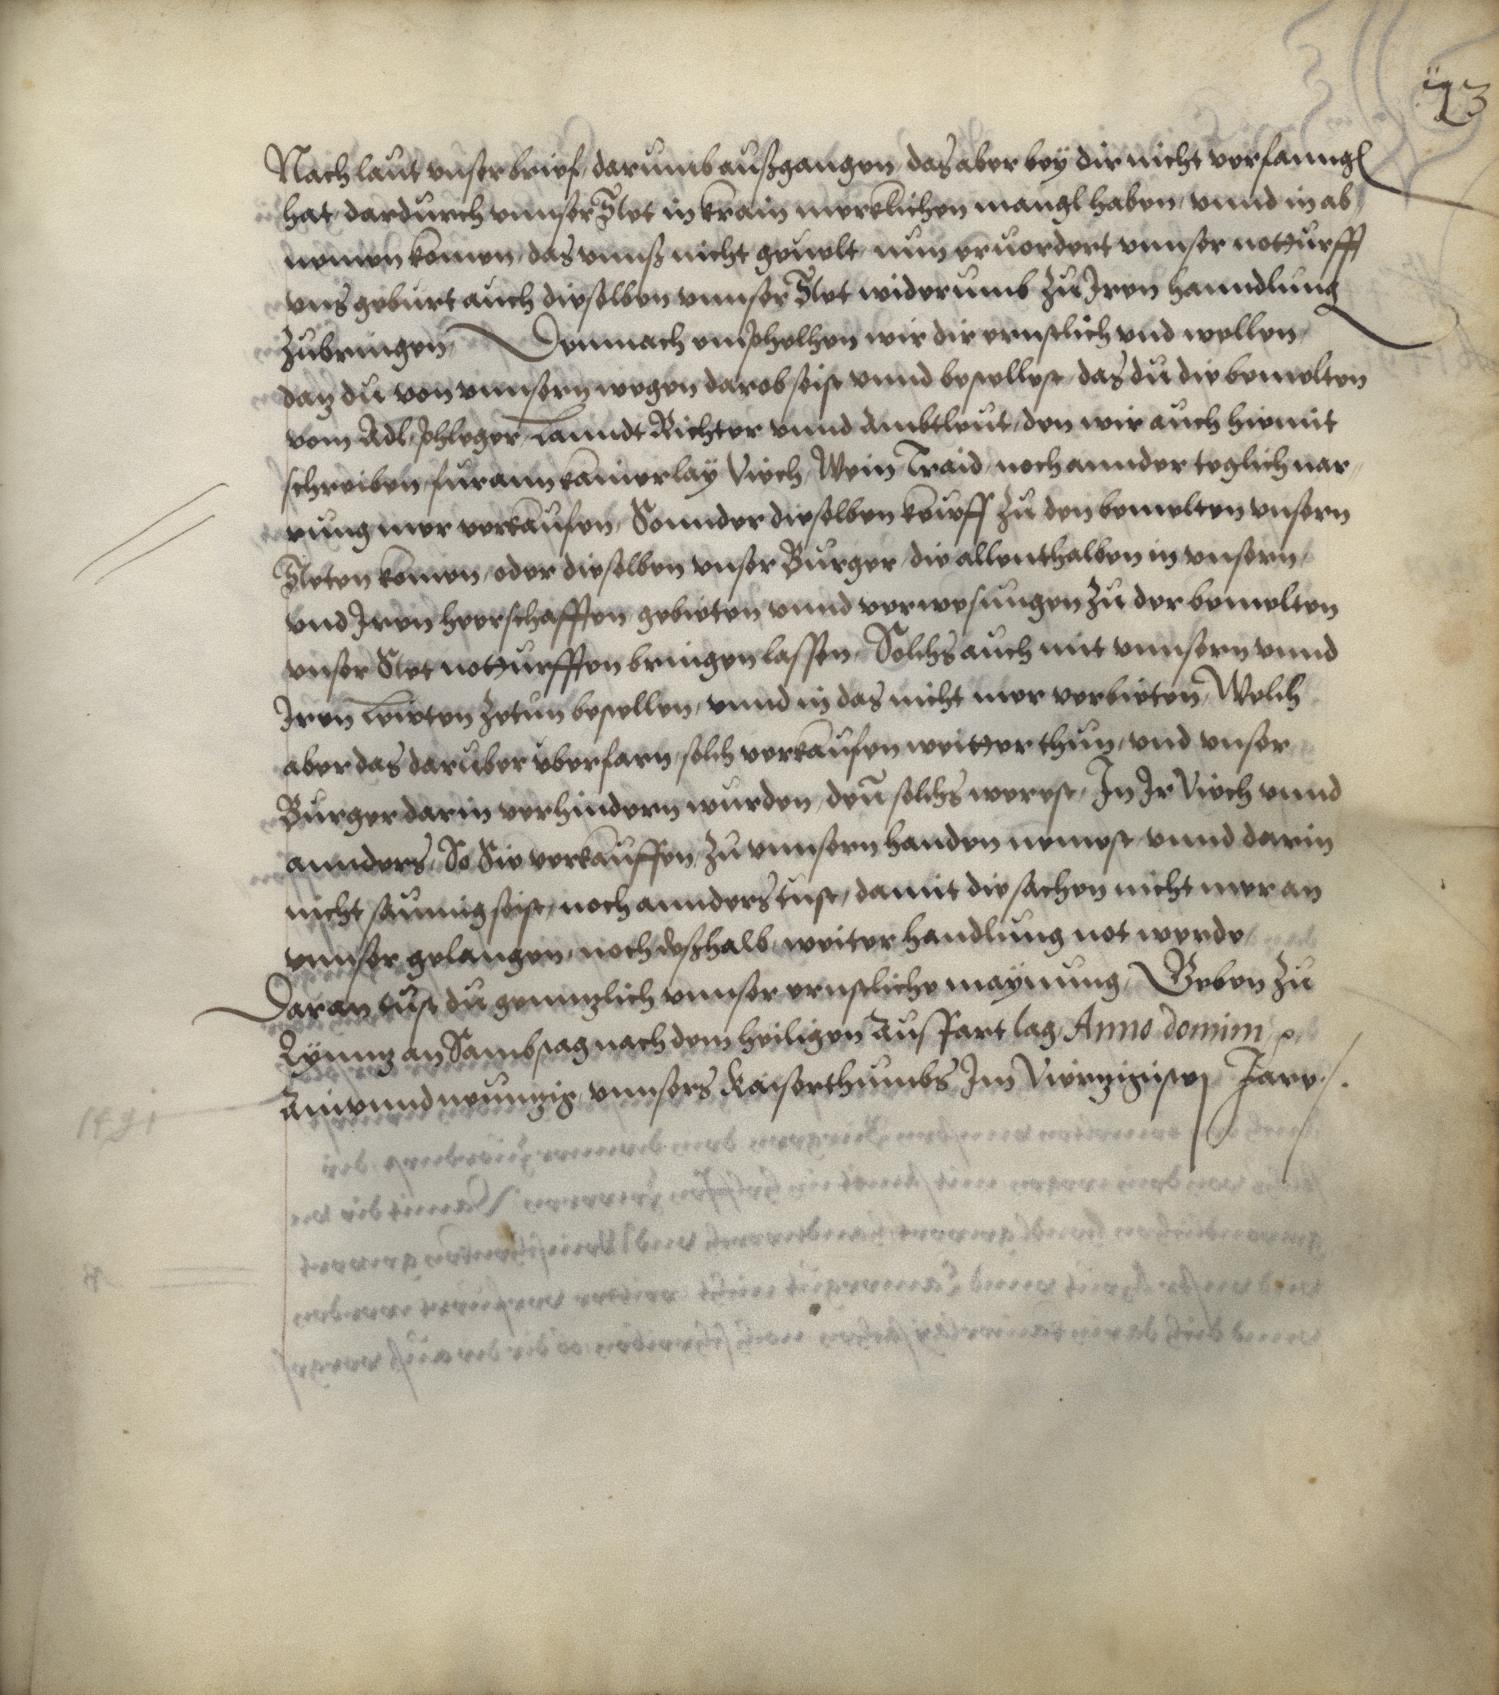 23
Nach laut unser brief, darumb außgangen, das aber bey dir nicht verfanngen
hat, dardurch unnser Stet in Krain mercklichen mangl haben, unnd in ab
nemen komen, das unnß nicht gevelt, nun ervordert unnser notturfft
uns geburt auch dieselben unnser Stet widerumb zu Iren hanndlung
zubringen, Demnach emphelhen wir dir ernstlich und wellen,
daz du von unnsern wegen darob seist unnd bestellest, das du die bemelten
vom Adl, phleger Lanndt Richter unnd Ambtleut, den wir auch hiemit
schreiben, furan kainerlay Viech, Wein Traid, noch annder teglich nar
rung mer verkaufen, Sonnder dieselben keuff zu den bemelten unsern
Steten komen, oder dieselben unser Burger, die allenthalben in unsern,
und Iren heerschafften gebieten unnd verwesungen zu der bemelten
unser Stet notturfften bringen lassen, Solchs auch mit unnsern unnd
Iren Leuten zetun bestellen, unnd in das nicht mer verbieten, Welch
aber das daruber uberfarn, solch verkaufen weitter thun, und unser
Burger darin verhindern wurden, den solchs werest, In Ir Viech unnd
annders, So Sie verkauffen, zu unnsern handen nemest unnd darin
nicht saumig seist, noch annders tust, damit die sachen nicht mer an
unnser gelangen, noch deßhalb, weiter handlung not werde,
Daran tust du genntzlich unnser ernstliche maynung, Geben zu
Lynntz an Sambstag nach dem heiligen Auffart tag, Anno domini
Ainunndneuntzig, unnsers Kaiserthumbs Im Viertzigisten Jare.
1491